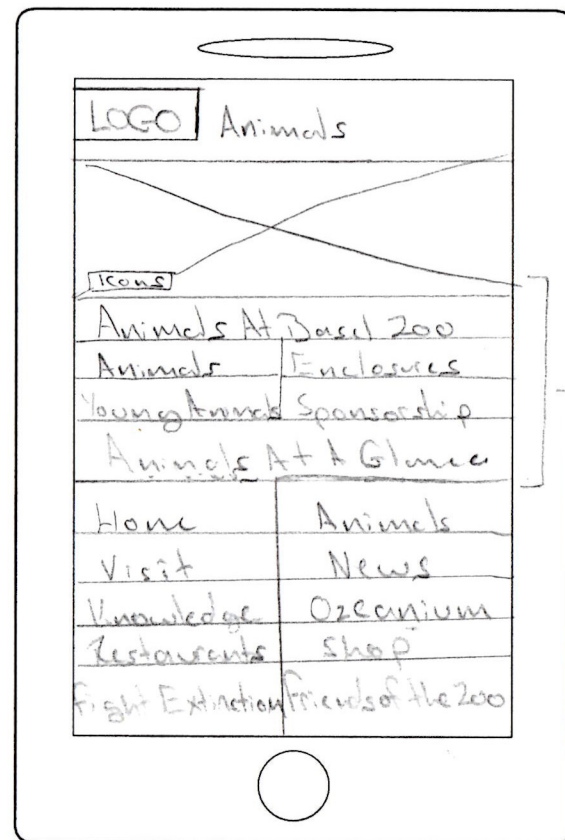 LOGO Animals
Icons
Animals At Basel Zoo
Animals Enclosures
Young Animals Sponsorship
Animals At A Glance
Home Animals
Visit News
Knowledge Ozeanium
Restaurants Shop
Fight Extinction Friends of the Zoo